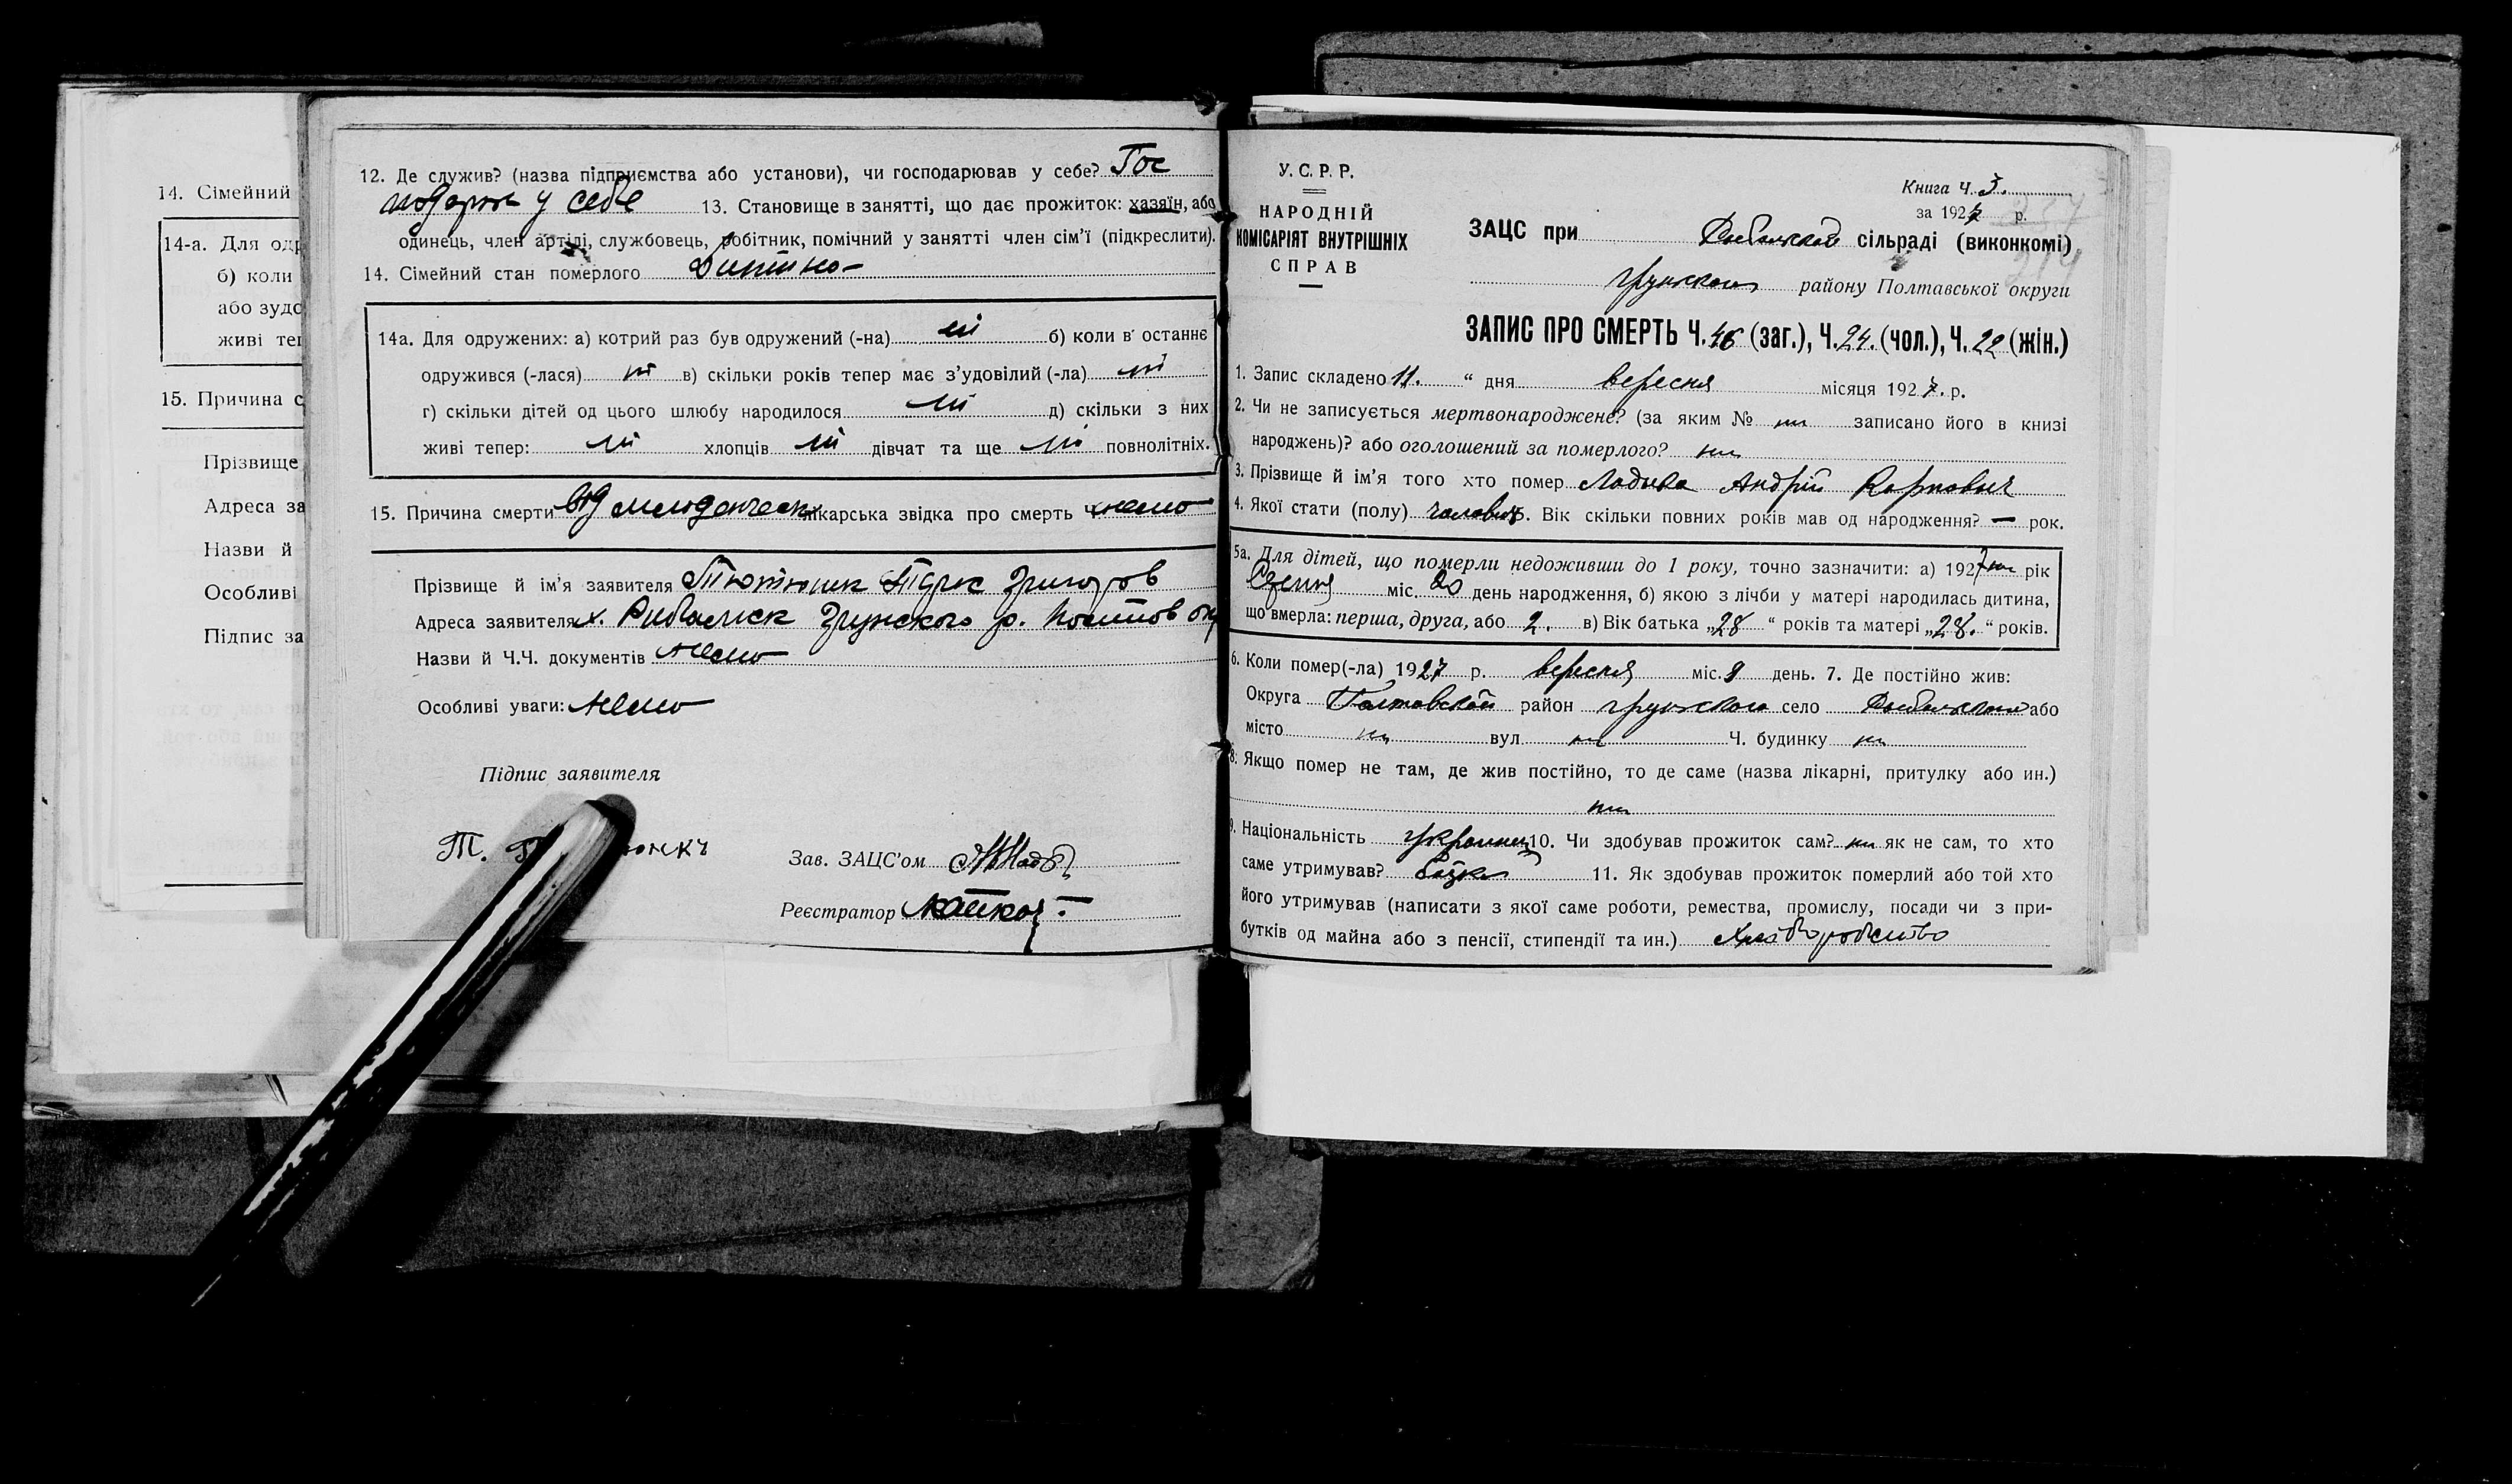 14. Сімейний
14-а. Для одр
б) коли
або зудо
живі теп
15. Причина с
Прізвище
Адреса за
Назви й
Особливі
Підпис за
12. Де служив? (назва підприємства або установи), чи господарював у себе? Гос
подарюв у себе 13. Становище в занятті, що дає прожиток: хазяїн, або
одинець, член артілі, службовець, робітник, помічний у занятті член сім’ї (підкреслити).
14. Сімейний стан померлого Дитино
14а. Для одружених: а) котрий раз був одружений (-на) ні б) коли в останнє
одружився (-лася) ні в) скільки років тепер має з’удовілий (-ла) ні
г) скільки дітей од цього шлюбу народилося ні д) скільки з них
живі тепер: ні хлопців ні дівчат та ще ні повнолітніх.
15. Причина смерти від лікарська звідка про смерть ч. немо
Прізвище й ім’я заявителя Тютюник Григоров
Адреса заявителя х. Рибальск Грунского р. Полтов окр
Назви й Ч.Ч. документів немо
Особливі уваги: немо
Підпис заявителя
Т.
Зав. ЗАЦС’ом
Реєстратор
У. С. Р. Р.
НАРОДНІЙ
КОМІСАРІЯТ ВНУТРІШНІХ
СПРАВ
Книга Ч. 3.
за 1927 р.
ЗАЦС при Рибальской сільраді (виконкомі)
грунского району Полтавської округи
ЗАПИС ПРО СМЕРТЬ Ч. 46 (заг.), Ч. 24. (чол.), Ч. 22 (жін.)
1. Запис складено 11. “ дня вересня місяця 1927. р.
2. Чи не записується мертвонароджене? (за яким № ни записано його в книзі
народжень)? або оголошений за померлого? ни
3. Прізвище й ім’я того хто помер Ладыка Андрій Карпович
4. Якої стати (полу) чоловіч 5. Вік скільки повних років мав од народження? — рок.
5а. Для дітей, що померли недоживши до 1 року, точно зазначити: а) 1927 рік
Сцення міс. 20 день народження, б) якою з лічби у матері народилась дитина,
що вмерла: перша, друга, або 2. в) Вік батька „28“ років та матері „28.“ років.
6. Коли помер(-ла) 1927 р. вересня міс. 9 день. 7. Де постійно жив:
Округа Полтовской район грунского село Рибальской або
місто ни вул ни Ч. будинку ни
8. Якщо помер не там, де жив постійно, то де саме (назва лікарні, притулку або ин.)
ни
9. Національність украинец 10. Чи здобував прожиток сам? ни як не сам, то хто
саме утримував? батько 11. Як здобував прожиток померлий або той хто
його утримував (написати з якої саме роботи, ремества, промислу, посади чи з при-
бутків од майна або з пенсії, стипендії та ин.) Хліборобство